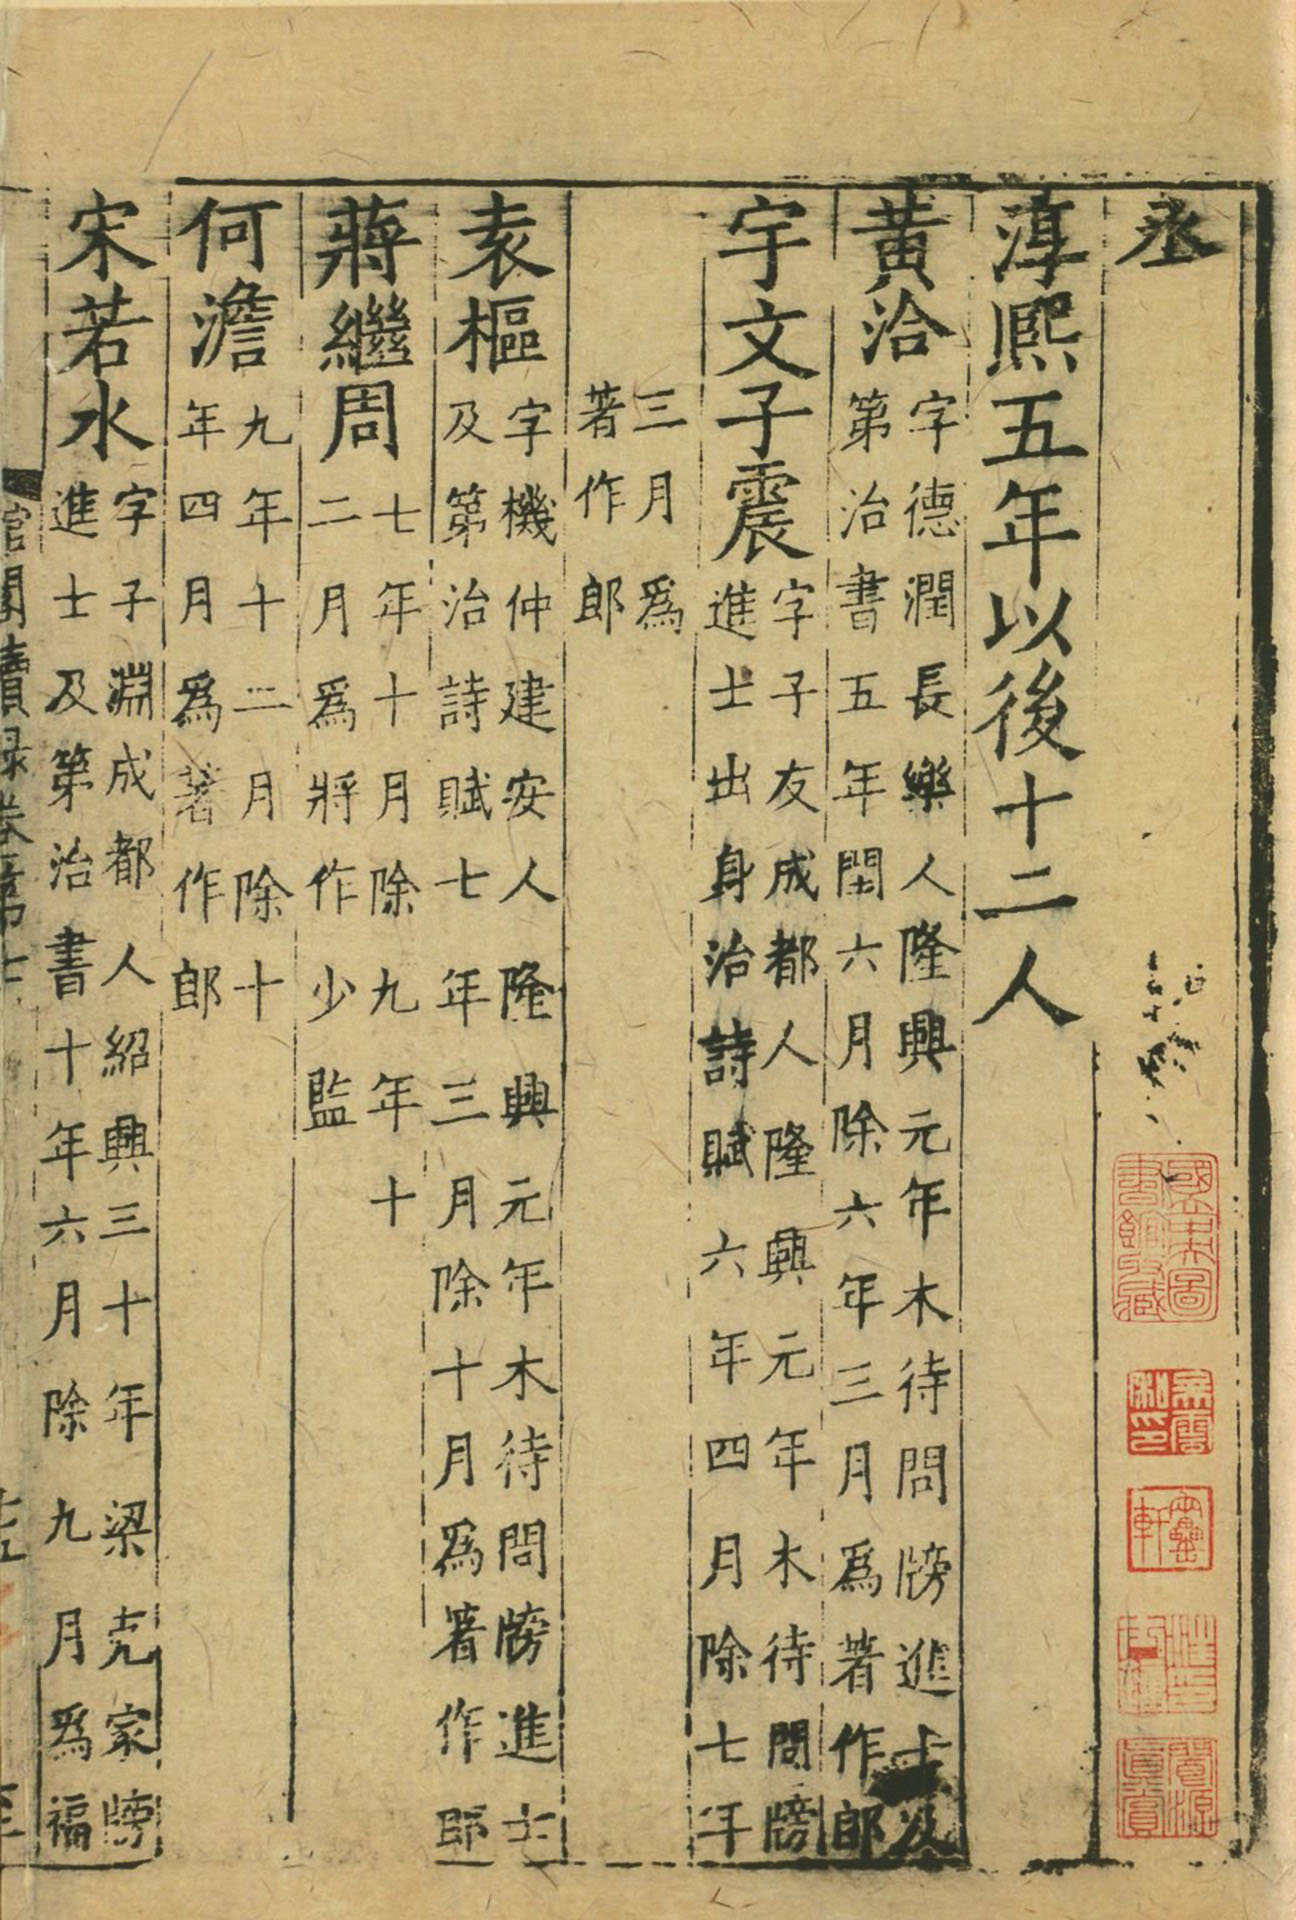 丞
淳熙五年以後十二人
黃洽字德潤長樂人隆興元年木待問牓進士及
第治書五年閏六月除六年三月爲著作郎
宇文子震字子友成都人隆興元年木待問牓
進士出身治詩賦六年四月除七年
三月爲
著作郎
袁樞字機仲建安人隆興元年木待問牓進士
及第治詩賦七年三月除十月爲著作郎
蔣繼周七年十月除九年十
二月爲將作少監
何澹九年十二月除十
年四月爲著作郎
宋若水字子淵成都人紹興三十年梁克家牓
進士及第治書十年六月除九月爲福
館閣續錄卷第七
國立中央圖書館收藏
吳雲私印